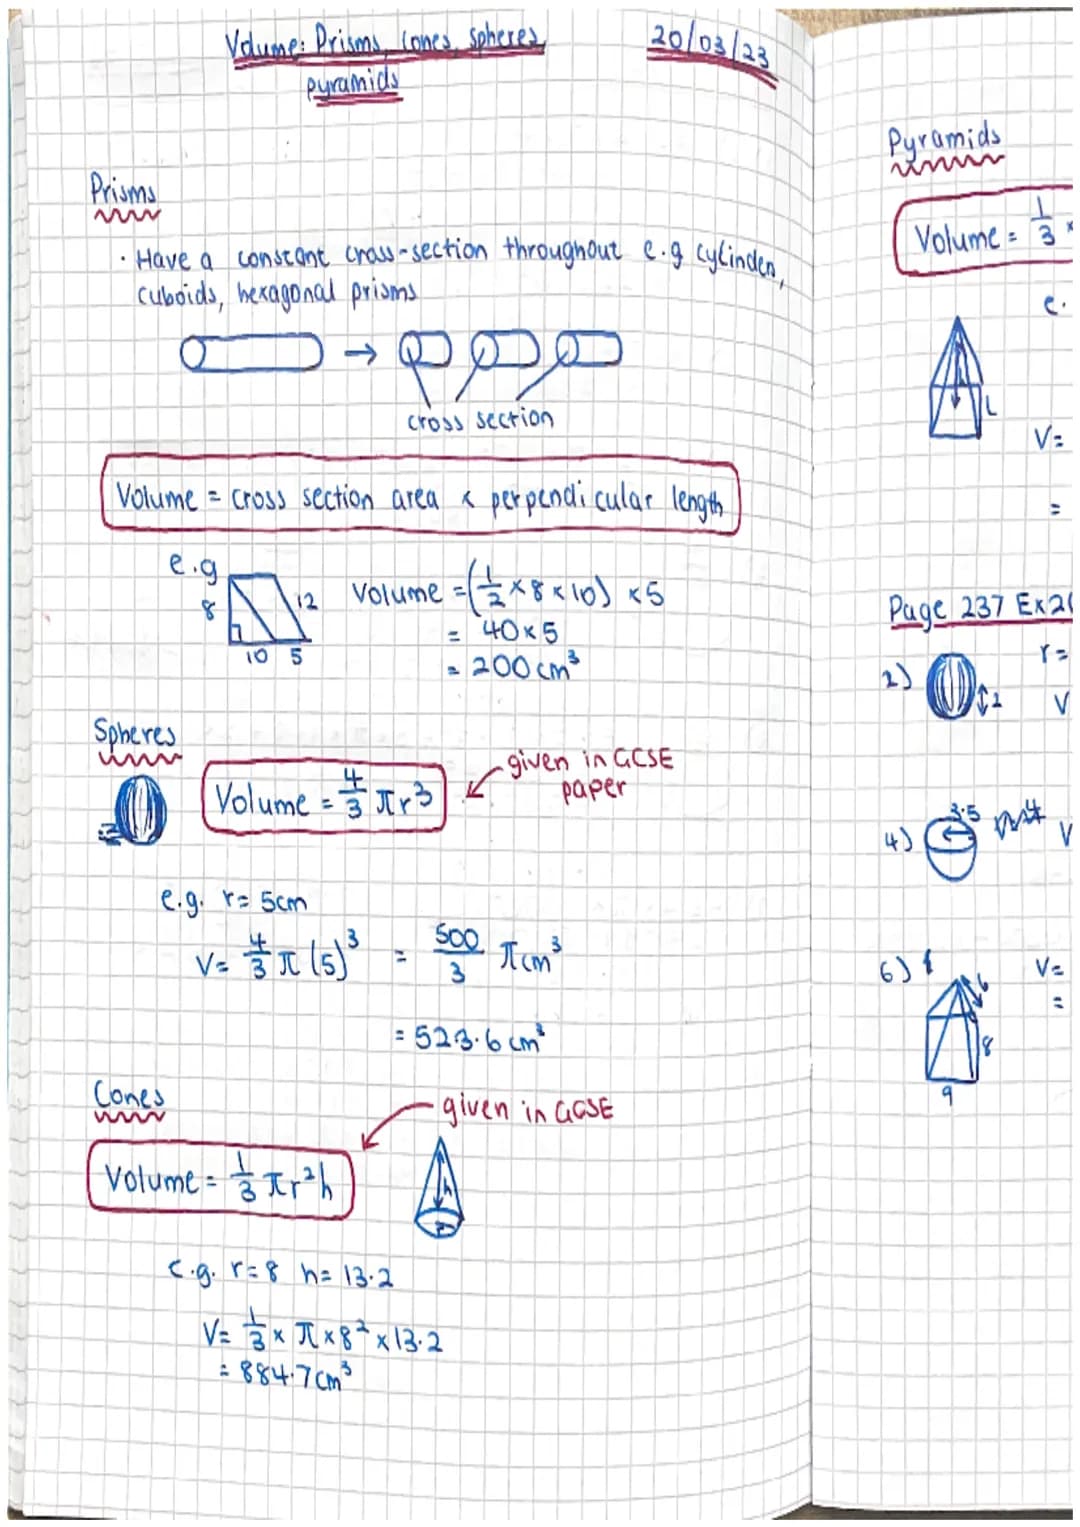 Volume: Prisms, Cones, Spheres,
pyramids
20/03/23
Prisms
· Have a constant cross-section throughout e.g cylinders,
cuboids, hexagonal prisms
→
cross section
Volume = cross section area × perpendicular length
e.g
8
12
10 5
Volume = (1/2 × 8 × 10) × 5
= 40 × 5
= 200 cm³
Spheres
Volume = 4/3 πr³
given in GCSE
paper
e.g. r = 5cm
V = 4/3 π (5)³ = 500/3 π cm³
= 523.6 cm³
Cones
given in GCSE
Volume = 1/3 πr²h
h
r
e.g. r=8 h= 13.2
V= 1/3 × π × 8² × 13.2
= 884.7 cm³
Pyramids
Volume = 1/3 ×
e.
L
V=
=
Page 237 Ex 20
2)
2
r=
V
4)
3.5
V
6)
6
8
9
V=
=